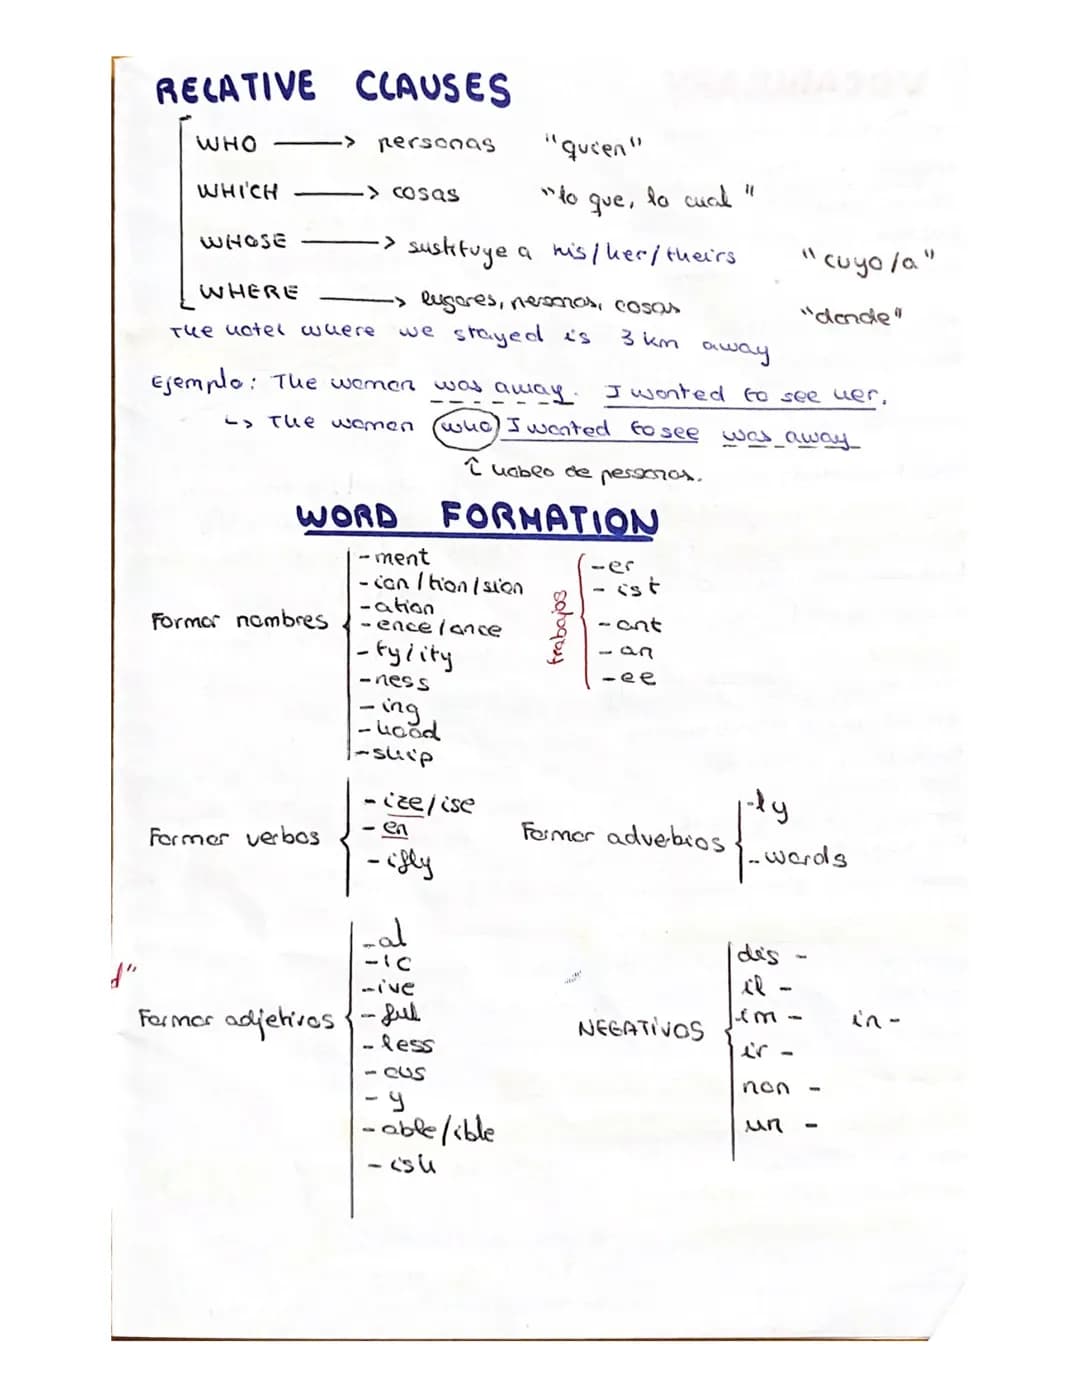 RELATIVE CLAUSES
WHO → personas "quien"
WHICH → cosas "lo que, lo cual"
WHOSE → sustituye a his/her/theirs "cuyo/a"
WHERE → lugares, personas, cosas "donde"
The hotel where we stayed is 3 km away
Ejemplo: The women was away. I wanted to see her.
↳ The women who I wanted to see was away
↑ hablo de personas.
WORD FORMATION
Formar nombres
-ment
-ion/tion/sion
-ation
-ence/ance
-ty/ity
-ness
-ing
-hood
-ship
trabajos
-er
-ist
-ant
-an
-ee
Formar verbos
-ize/ise
-en
-ifly
Formar adverbios
-ly
-words
d"
Formar adjetivos
-al
-ic
-ive
-ful
-less
-ous
-y
-able/ible
-ish
NEGATIVOS
dis-
il-
im- in-
ir-
non-
un-